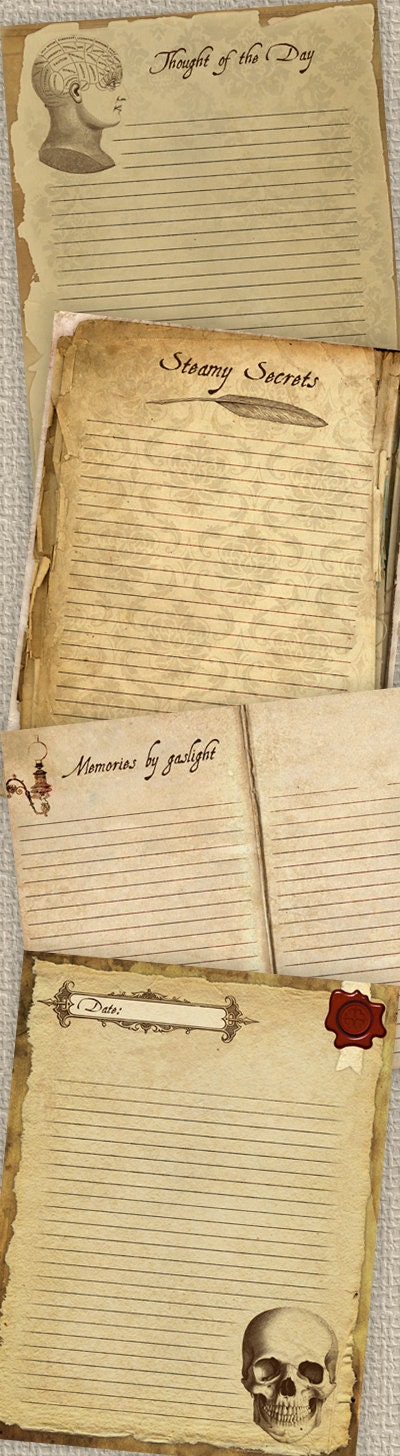 Thought of the Day
Steamy Secrets
Memories by gaslight
Date: